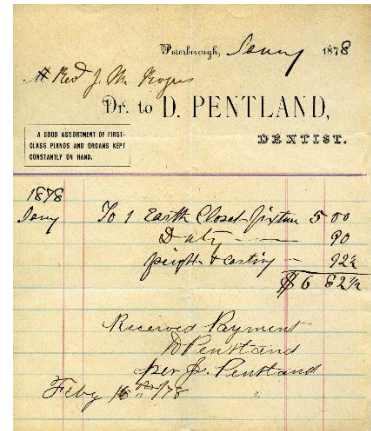 Peterborough, Jany 1878
Revd J. M. Roger
Dr. to D. PENTLAND,
DENTIST.
A GOOD ASSORTMENT OF FIRST-
CLASS PIANOS AND ORGANS KEPT
CONSTANTLY ON HAND.
1878
Jany To 1 Earth Closet fixture 5 00
Duty — 90
freight & carting — 92½
$6 82½
Received Payment
D Pentland
per J. Pentland
Feby 16th /78